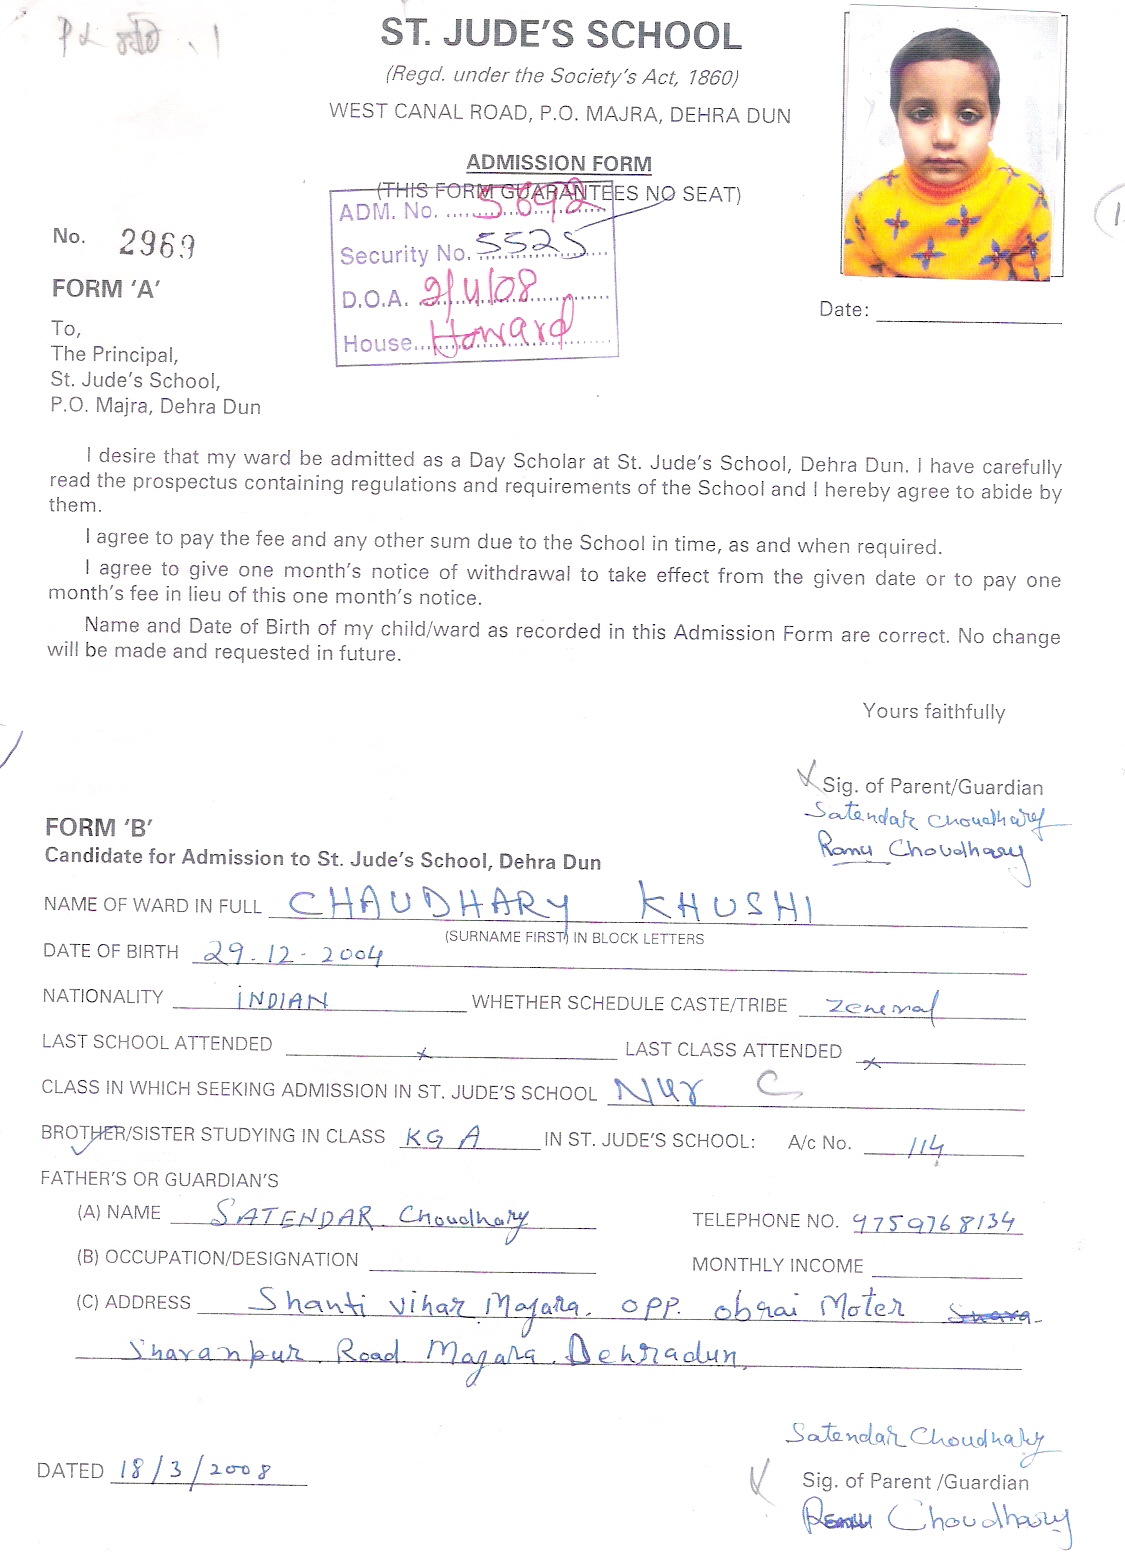 ST. JUDE'S SCHOOL
(Regd. under the Society's Act, 1860)
WEST CANAL ROAD, P.O. MAJRA, DEHRA DUN
ADMISSION FORM
(THIS FORM GUARANTEES NO SEAT)
ADM. No. ...... 5692
Security No. 5525
D.O.A. 2/4/08
House... Howard
No. 2969
FORM 'A'
Date:
To,
The Principal,
St. Jude's School,
P.O. Majra, Dehra Dun
I desire that my ward be admitted as a Day Scholar at St. Jude's School, Dehra Dun. I have carefully
read the prospectus containing regulations and requirements of the School and I hereby agree to abide by
them.
I agree to pay the fee and any other sum due to the School in time, as and when required.
I agree to give one month's notice of withdrawal to take effect from the given date or to pay one
month's fee in lieu of this one month's notice.
Name and Date of Birth of my child/ward as recorded in this Admission Form are correct. No change
will be made and requested in future.
Yours faithfully
Sig. of Parent/Guardian
Satendar Choudhary
Choudhary
FORM 'B'
Candidate for Admission to St. Jude's School, Dehra Dun
NAME OF WARD IN FULL CHAUDHARY KHUSHI
(SURNAME FIRST) IN BLOCK LETTERS
DATE OF BIRTH 29.12-2004
NATIONALITY INDIAN WHETHER SCHEDULE CASTE/TRIBE Zeneral
LAST SCHOOL ATTENDED x LAST CLASS ATTENDED x
CLASS IN WHICH SEEKING ADMISSION IN ST. JUDE'S SCHOOL Nur C
BROTHER/SISTER STUDYING IN CLASS KG A IN ST. JUDE'S SCHOOL: A/c No. 114
FATHER'S OR GUARDIAN'S
(A) NAME SATENDAR Choudhary TELEPHONE NO. 9759768134
(B) OCCUPATION/DESIGNATION MONTHLY INCOME
(C) ADDRESS Shanti vihar Majara. OPP. obrai Moter
Sharanpur Road Majara. Dehradun.
Satendar Choudhary
DATED 18/3/2008
Sig. of Parent /Guardian
Choudhary